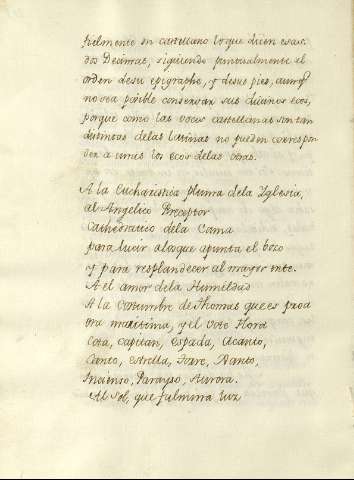 fielmente en castellano lo que dicen esas
dos Decimas, siguiendo puntualmente el
orden de su epigraphe, y de sus pies, aunq.
no sea posible conservar sus mismos ecos,
porque como las voces castellanas son tan
distintas de las latinas no pueden correspon
der a unas los ecos de las otras.
A la Eucharistica pluma de la Yglesia,
al Angelico Preceptor
Cathedratico de la Cama
para lucir a los que apunta el bozo
y para resplandecer al mayor nte.
A el amor de la Humildad
A la costumbre de Thomas que es prod
ora maxima, y el voto Flora
Cota, capitan, Espada, Acanto,
Canto, estrella, Torre, Nanto,
Incienso, Parayso, Aurora.
Al Sol, que fulmina luz